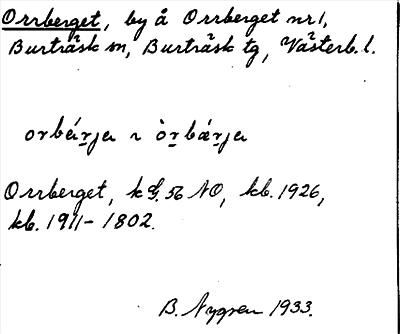 Orrberget, by å Orrberget nr 1,
Burträsk sn, Burträsk tg, Västerb. l.
orbǽrja ɩ òrbærja
Orrberget, k 56 NO, kb. 1926,
kb. 1911-1802.
B. Nygren 1933.